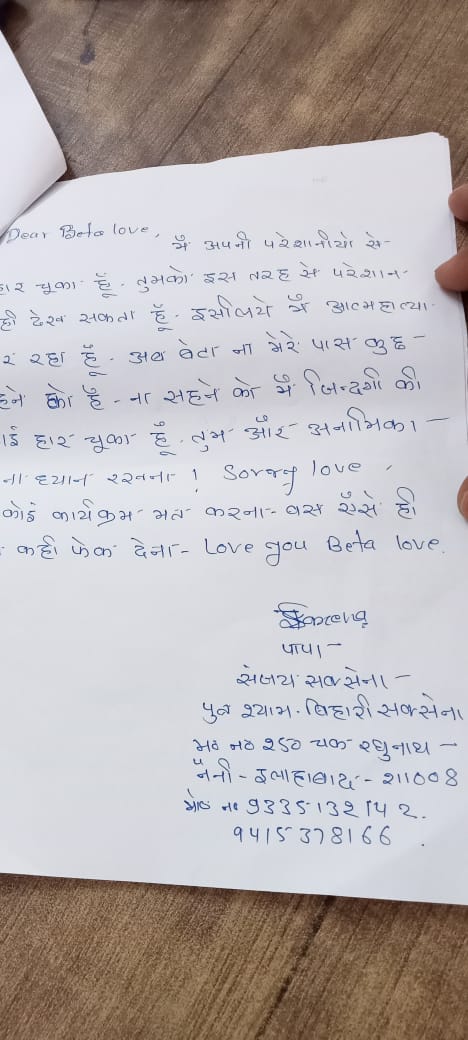 Dear Beta love,
मैं अपनी परेशानीयो से-
हार चूका हूँ. तुमको इस तरह से परेशान-
ही देख सकता हूँ. इसीलिये मैं आत्महात्या-
र रहा हूँ. अब बेटा ना मेरे पास कुछ-
हने को है - ना सहने को मैं जिन्दगी की
ाई हार चूका हूँ. तुम और अनामिका -
ना ध्यान रखना ! Sorry love.
कोई कार्यक्रम मत करना- बस ऐसे ही
कही फेक देना- Love you Beta love.
पापा-
संजय सक्सेना -
पुत्र श्याम. बिहारी सक्सेना
म० न० २५० चक रघुनाथ -
नैनी - इलाहाबाद - २११००8
मो० न० 9335132142.
9415378166.